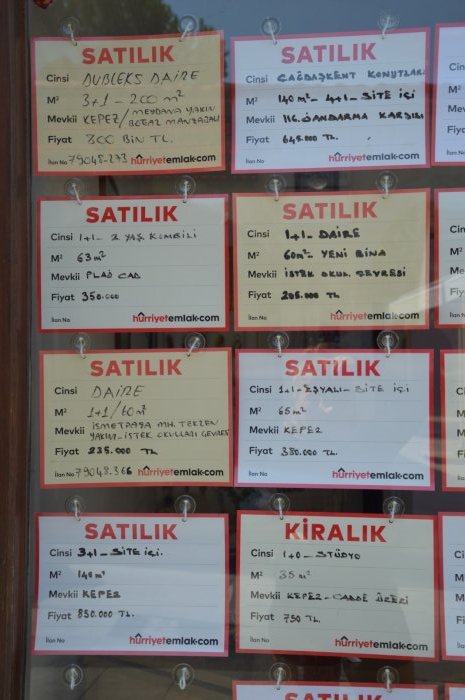 SATILIK
Cinsi DUBLEKS DAİRE
M² 3+1 - 200 m²
Mevkii KEPEZ / MEYDANA YAKIN
BOĞAZ MANZARALI
Fiyat 300 BİN TL.
İlan No 79048-273 hürriyetemlak.com
SATILIK
Cinsi ÇAĞDAŞKENT KONUTLARI
M² 140 m² - 4+1 - SİTE İÇİ
Mevkii 116. JANDARMA KARŞISI
Fiyat 645.000 TL.
İlan No hürriyetemlak.com
SATILIK
Cinsi 1+1 - 2 YAŞ KOMBİLİ
M² 63 m²
Mevkii PLAJ CAD
Fiyat 350.000
İlan No hürriyetemlak.com
SATILIK
Cinsi 1+1 - DAİRE
M² 60 m² - YENİ BİNA
Mevkii İSTEK OKUL. ÇEVRESİ
Fiyat 205.000 TL
İlan No hürriyetemlak.com
SATILIK
Cinsi DAİRE
M² 1+1 / 60 m²
Mevkii İSMETPAŞA MH. TEKZEN
YAKINI - İSTEK OKULLARI ÇEVRESİ
Fiyat 235.000 TL
İlan No 79048.366 hürriyetemlak.com
SATILIK
Cinsi 1+1 - EŞYALI - SİTE İÇİ
M² 65 m²
Mevkii KEPEZ
Fiyat 380.000 TL.
İlan No hürriyetemlak.com
SATILIK
Cinsi 3+1 - SİTE İÇİ.
M² 140 m²
Mevkii KEPEZ
Fiyat 850.000 TL.
İlan No hürriyetemlak.com
KİRALIK
Cinsi 1+0 - STÜDYO
M² 35 m²
Mevkii KEPEZ - CADDE ÜZERİ
Fiyat 750 TL
İlan No hürriyetemlak.com
SATILIK